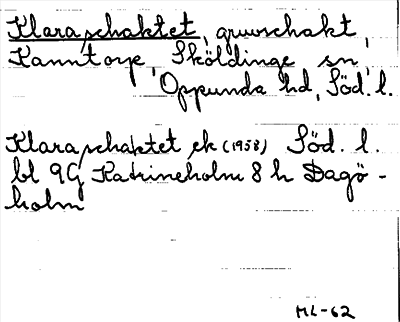 Klaraschaktet, gruvschakt,
Kanntorp, Sköldinge sn,
Oppunda hd, Söd. l.
Klaraschaktet ek (1958) Söd. l.
bl 9G Katrineholm 8 h Dagö-
holm
ML-62